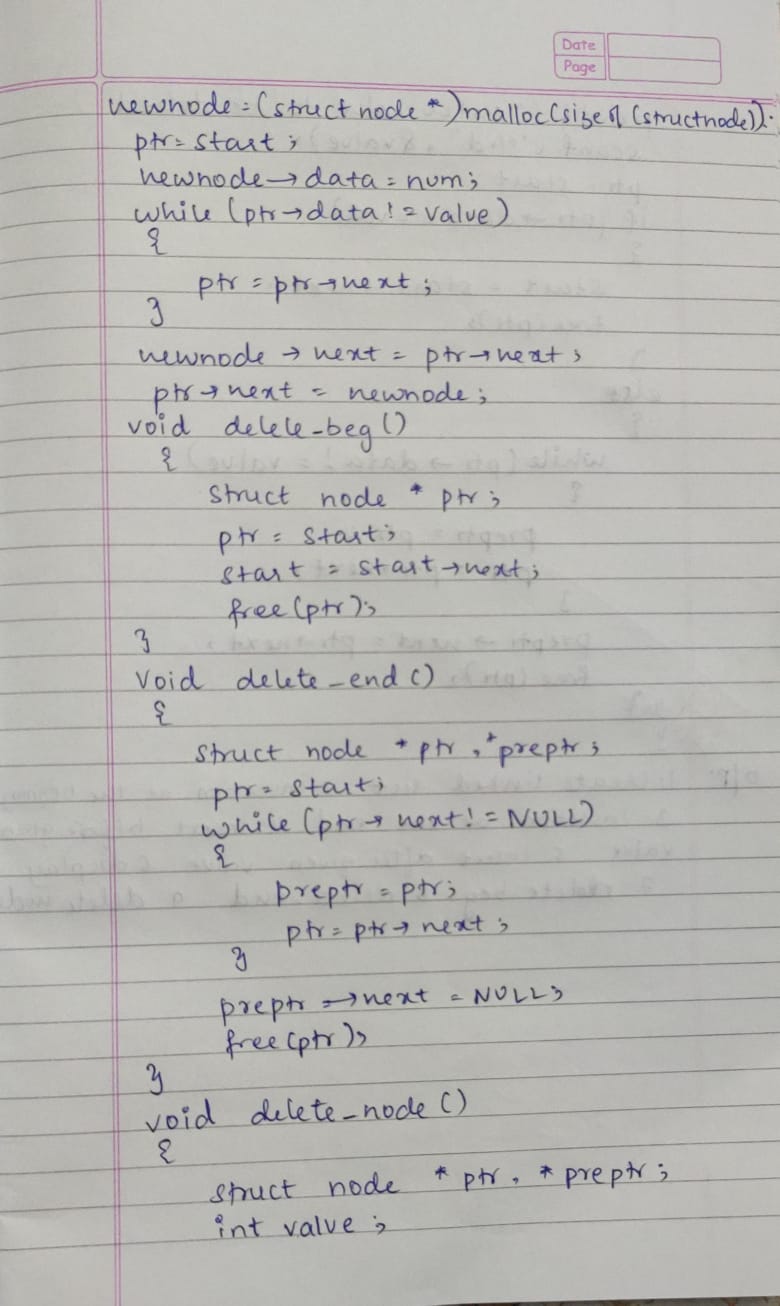 Date
Page
newnode = (struct node *) malloc(sizeof (structnode));
ptr = start ;
newnode → data = num ;
while (ptr → data != value)
{
ptr = ptr → next ;
}
newnode → next = ptr → next ;
ptr → next = newnode ;
void delele_beg ()
{
struct node * ptr ;
ptr = start ;
start = start → next ;
free (ptr) ;
}
void delete_end ()
{
struct node * ptr , * preptr ;
ptr = start ;
while (ptr → next != NULL)
{
preptr = ptr ;
ptr = ptr → next ;
}
preptr → next = NULL ;
free (ptr) ;
}
void delete_node ()
{
struct node * ptr , * preptr ;
int value ;